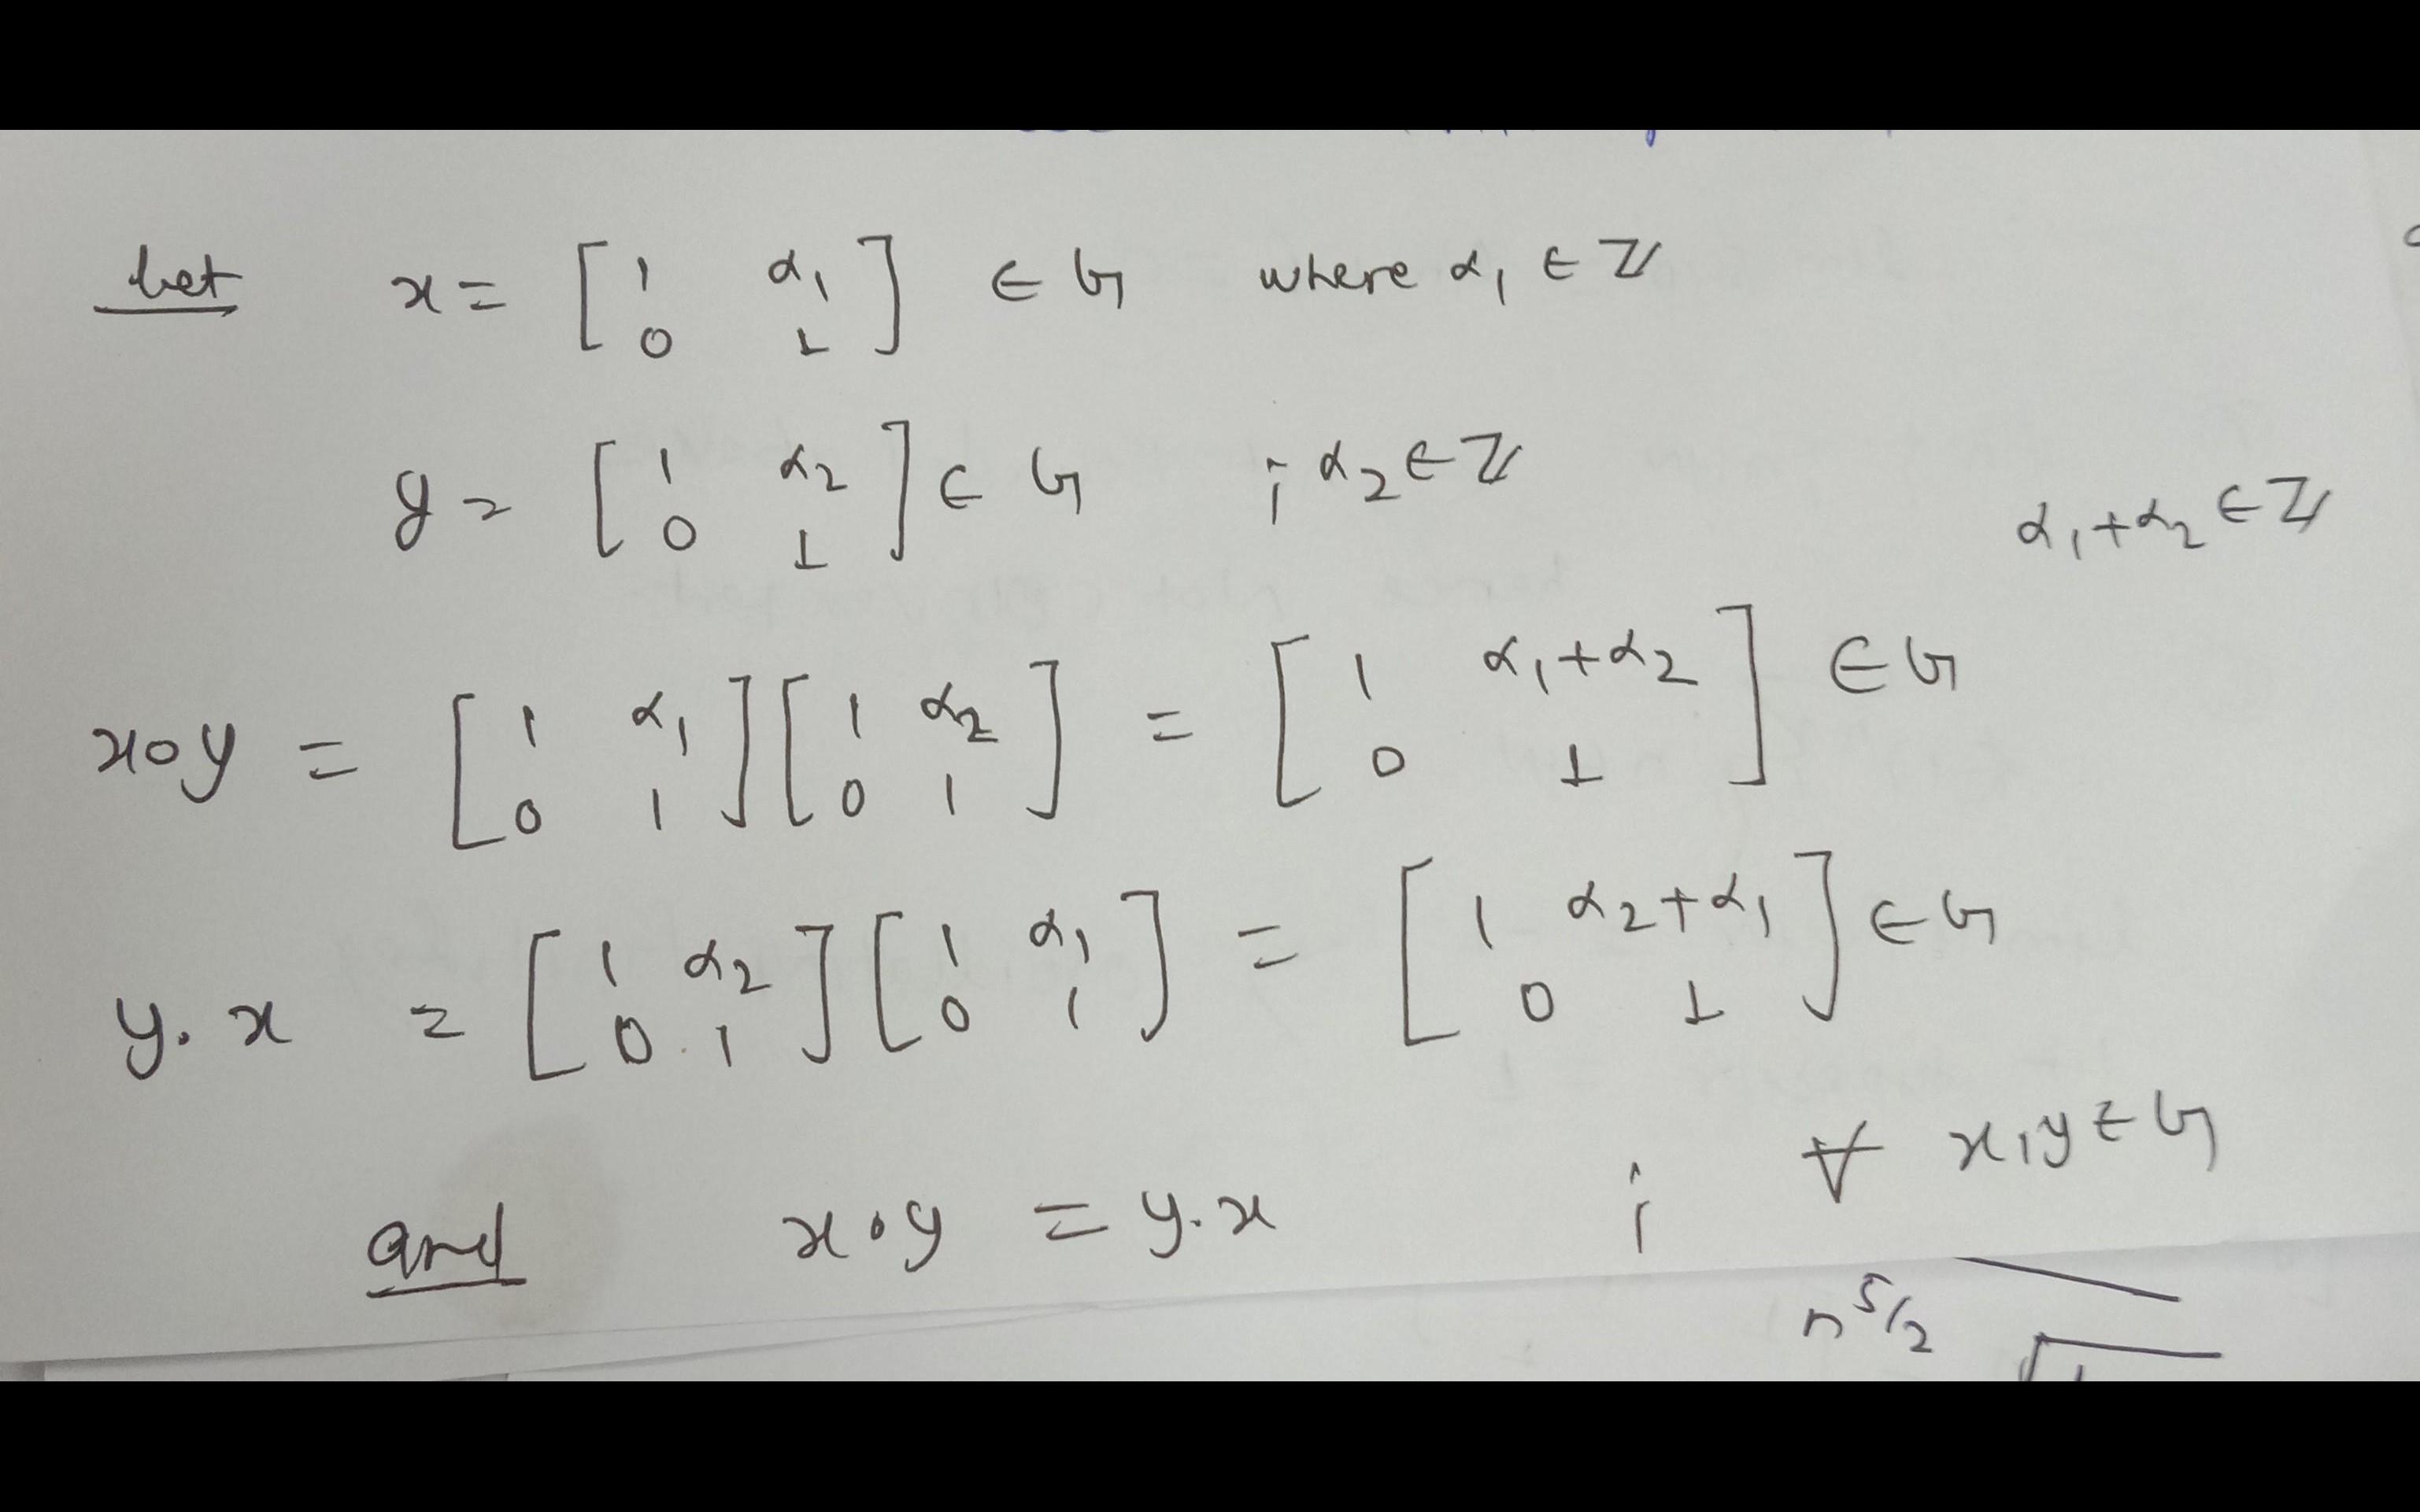 let x = [ 1 α₁ ; 0 1 ] ∈ G where α₁ ∈ ℤ
y = [ 1 α₂ ; 0 1 ] ∈ G ; α₂ ∈ ℤ
α₁+α₂ ∈ ℤ
x∘y = [ 1 α₁ ; 0 1 ] [ 1 α₂ ; 0 1 ] = [ 1 α₁+α₂ ; 0 1 ] ∈ G
y.x = [ 1 α₂ ; 0 1 ] [ 1 α₁ ; 0 1 ] = [ 1 α₂+α₁ ; 0 1 ] ∈ G
and x∘y = y.x ; ∀ x,y ∈ G
n^5/2